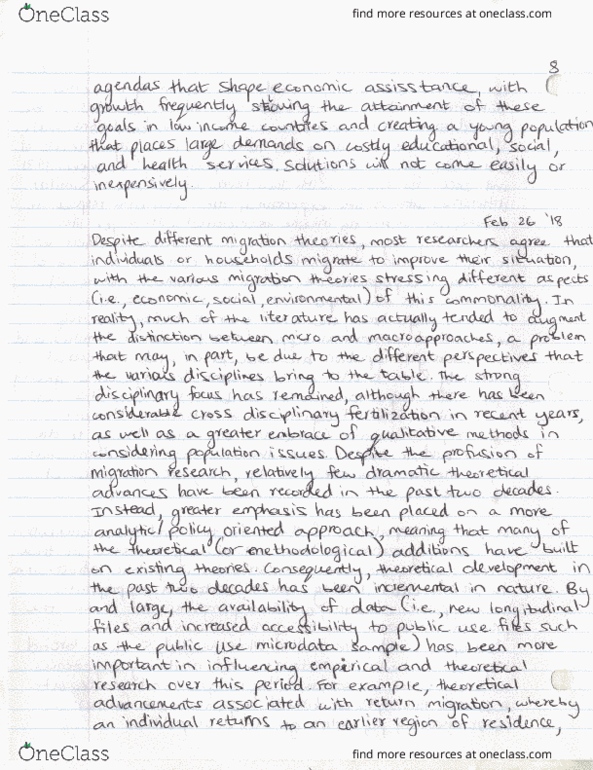 OneClass
find more resources at oneclass.com
8
agendas that shape economic assisstance, with
growth frequently the attainment of these
goals in low income countries and creating a young population
that places large demands on costly educational, social,
and health services. Solutions will not come easily or
inexpensively.
Feb 26 '18
Despite different migration theories, most researchers agree that
individuals or households migrate to improve their situation,
with the various migration theories stressing different aspects
(i.e., economic, social, environmental) of this commonality. In
reality, much of the literature has actually tended to augment
the distinction between micro and macroapproaches, a problem
that may, in part, be due to the different perspectives that
the various disciplines bring to the table. The strong
disciplinary focus has remained, although there has been
considerable cross disciplinary fertilization in recent years,
as well as a greater embrace of qualitative methods in
considering population issues. Despite the profusion of
migration research, relatively few dramatic theoretical
advances have been recorded in the past two decades.
Instead, greater emphasis has been placed on a more
analytic/policy oriented approach, meaning that many of
the theoretical (or methodological) additions have built
on existing theories. Consequently, theoretical development in
the past two decades has been incremental in nature. By
and large, the availability of data (i.e., new longitudinal
files and increased accessibility to public use files such
as the public use microdata sample) has been more
important in influencing empirical and theoretical
research over this period. For example, theoretical
advancements associated with return migration, whereby
an individual returns to an earlier region of residence,
OneClass
find more resources at oneclass.com